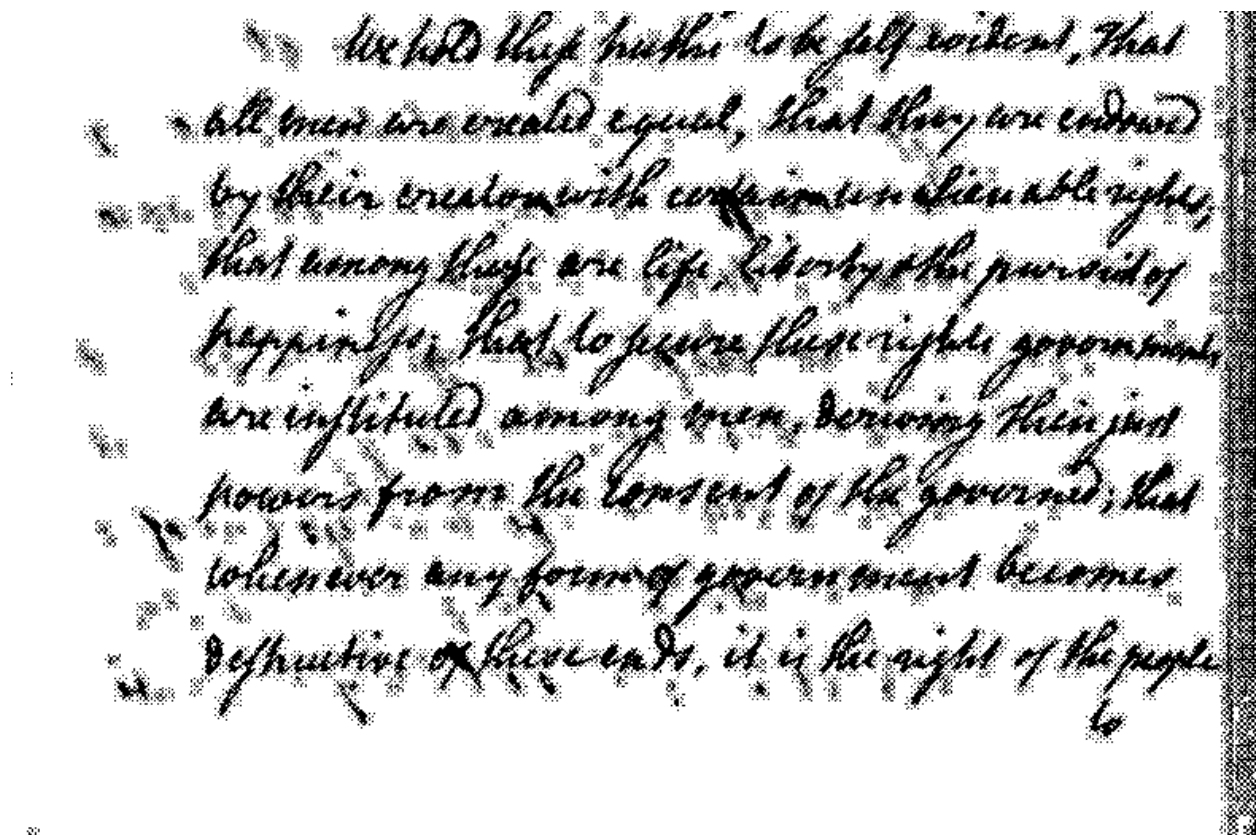 We hold these truths to be self evident, that
all men are created equal, that they are endowed
by their creator with certain unalienable rights;
that among these are life, liberty & the pursuit of
happiness; that to secure these rights governments
are instituted among men, deriving their just
powers from the consent of the governed; that
whenever any form of government becomes
destructive of these ends, it is the right of the people
to